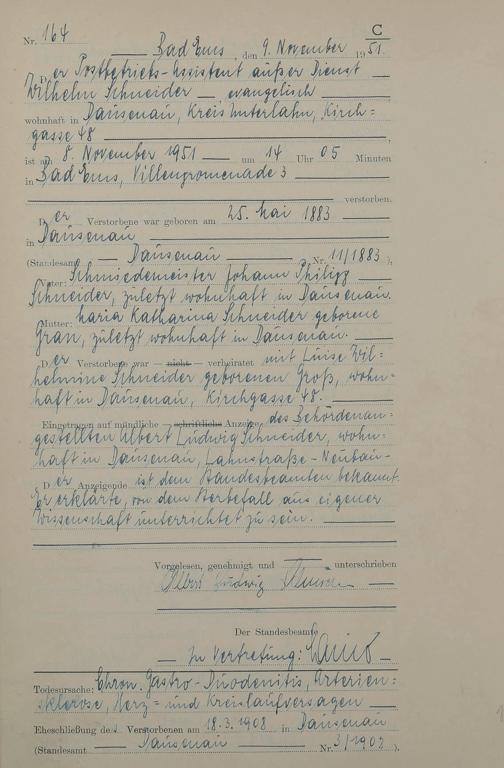 C
Nr. 164
Bad Ems, den 9. November 1951.
Der Postbetriebs-Assistent außer Dienst
Wilhelm Schneider — evangelisch
wohnhaft in Dausenau, Kreis Unterlahn, Kirch=
gasse 48
ist am 8. November 1951 um 14 Uhr 05 Minuten
in Bad Ems, Villenpromenade 3
verstorben.
Der Verstorbene war geboren am 25. Mai 1883
in Dausenau
(Standesamt Dausenau Nr. 11/1883),
Vater: Schmiedemeister Johann Philipp
Schneider, zuletzt wohnhaft in Dausenau.
Mutter: Maria Katharina Schneider geborene
zuletzt wohnhaft in Dausenau.
Der Verstorbene war nicht verheiratet mit Luise Wil=
helmine Schneider geborenen Groß, wohn=
haft in Dausenau, Kirchgasse 48.
Eingetragen auf mündliche schriftliche Anzeige des Behördenan=
gestellten Albert Ludwig Schneider, wohn=
haft in Dausenau, Lahnstraße-Neubau-
Der Anzeigende ist dem Standesbeamten bekannt.
Er erklärte, von dem Sterbefall aus eigener
Wissenschaft unterrichtet zu sein.
Vorgelesen, genehmigt und unterschrieben
Albert Ludwig Schneider
Der Standesbeamte
In Vertretung:
Todesursache: Chron. Gastro-Duodenitis, Arterien=
sklerose, Herz= und Kreislaufversagen
Eheschließung des Verstorbenen am 18.3.1908 in Dausenau
(Standesamt Dausenau Nr. 3/1908).